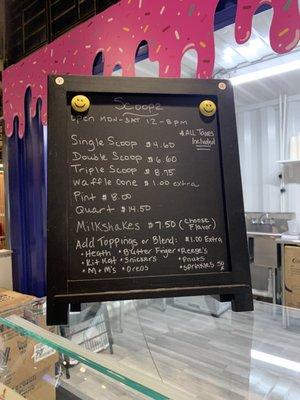 Scoopz
Open Mon-Sat 12-8pm
* All Taxes
Included
Single Scoop $4.60
Double Scoop $6.60
Triple Scoop $8.75
Waffle Cone $1.00 extra
Pint $8.00
Quart $14.50
Milkshakes $7.50 (Choose Flavor)
Add Toppings or Blend: $1.00 Extra
* Heath * Butter Finger * Reese's
* Kit Kat * Snickers * Pnuts
* M+M's * Oreos * Sprinkles .50